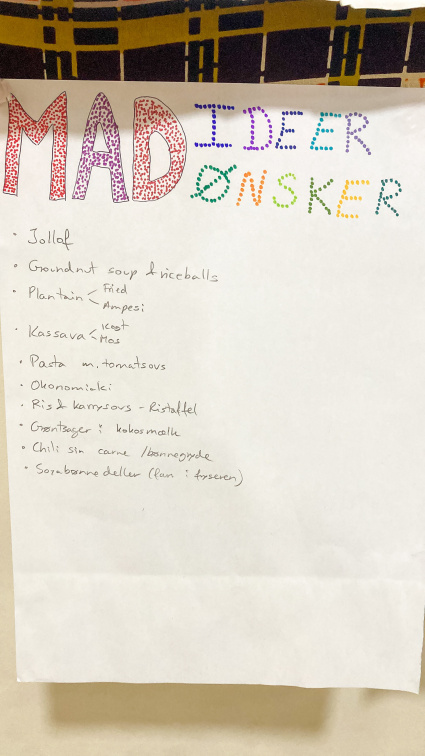 MAD IDEER
ØNSKER
• Jollof
• Groundnut soup & riceballs
• Plantain < Fried
Ampesi
• Kassava < Kogt
Mos
• Pasta m. tomatsovs
• Okonomiaki
• Ris & karrysovs - Ristaffel
• Grøntsager i kokosmælk
• Chili sin carne /bønnegryde
• Sojabønnedeller (fan i fryseren)